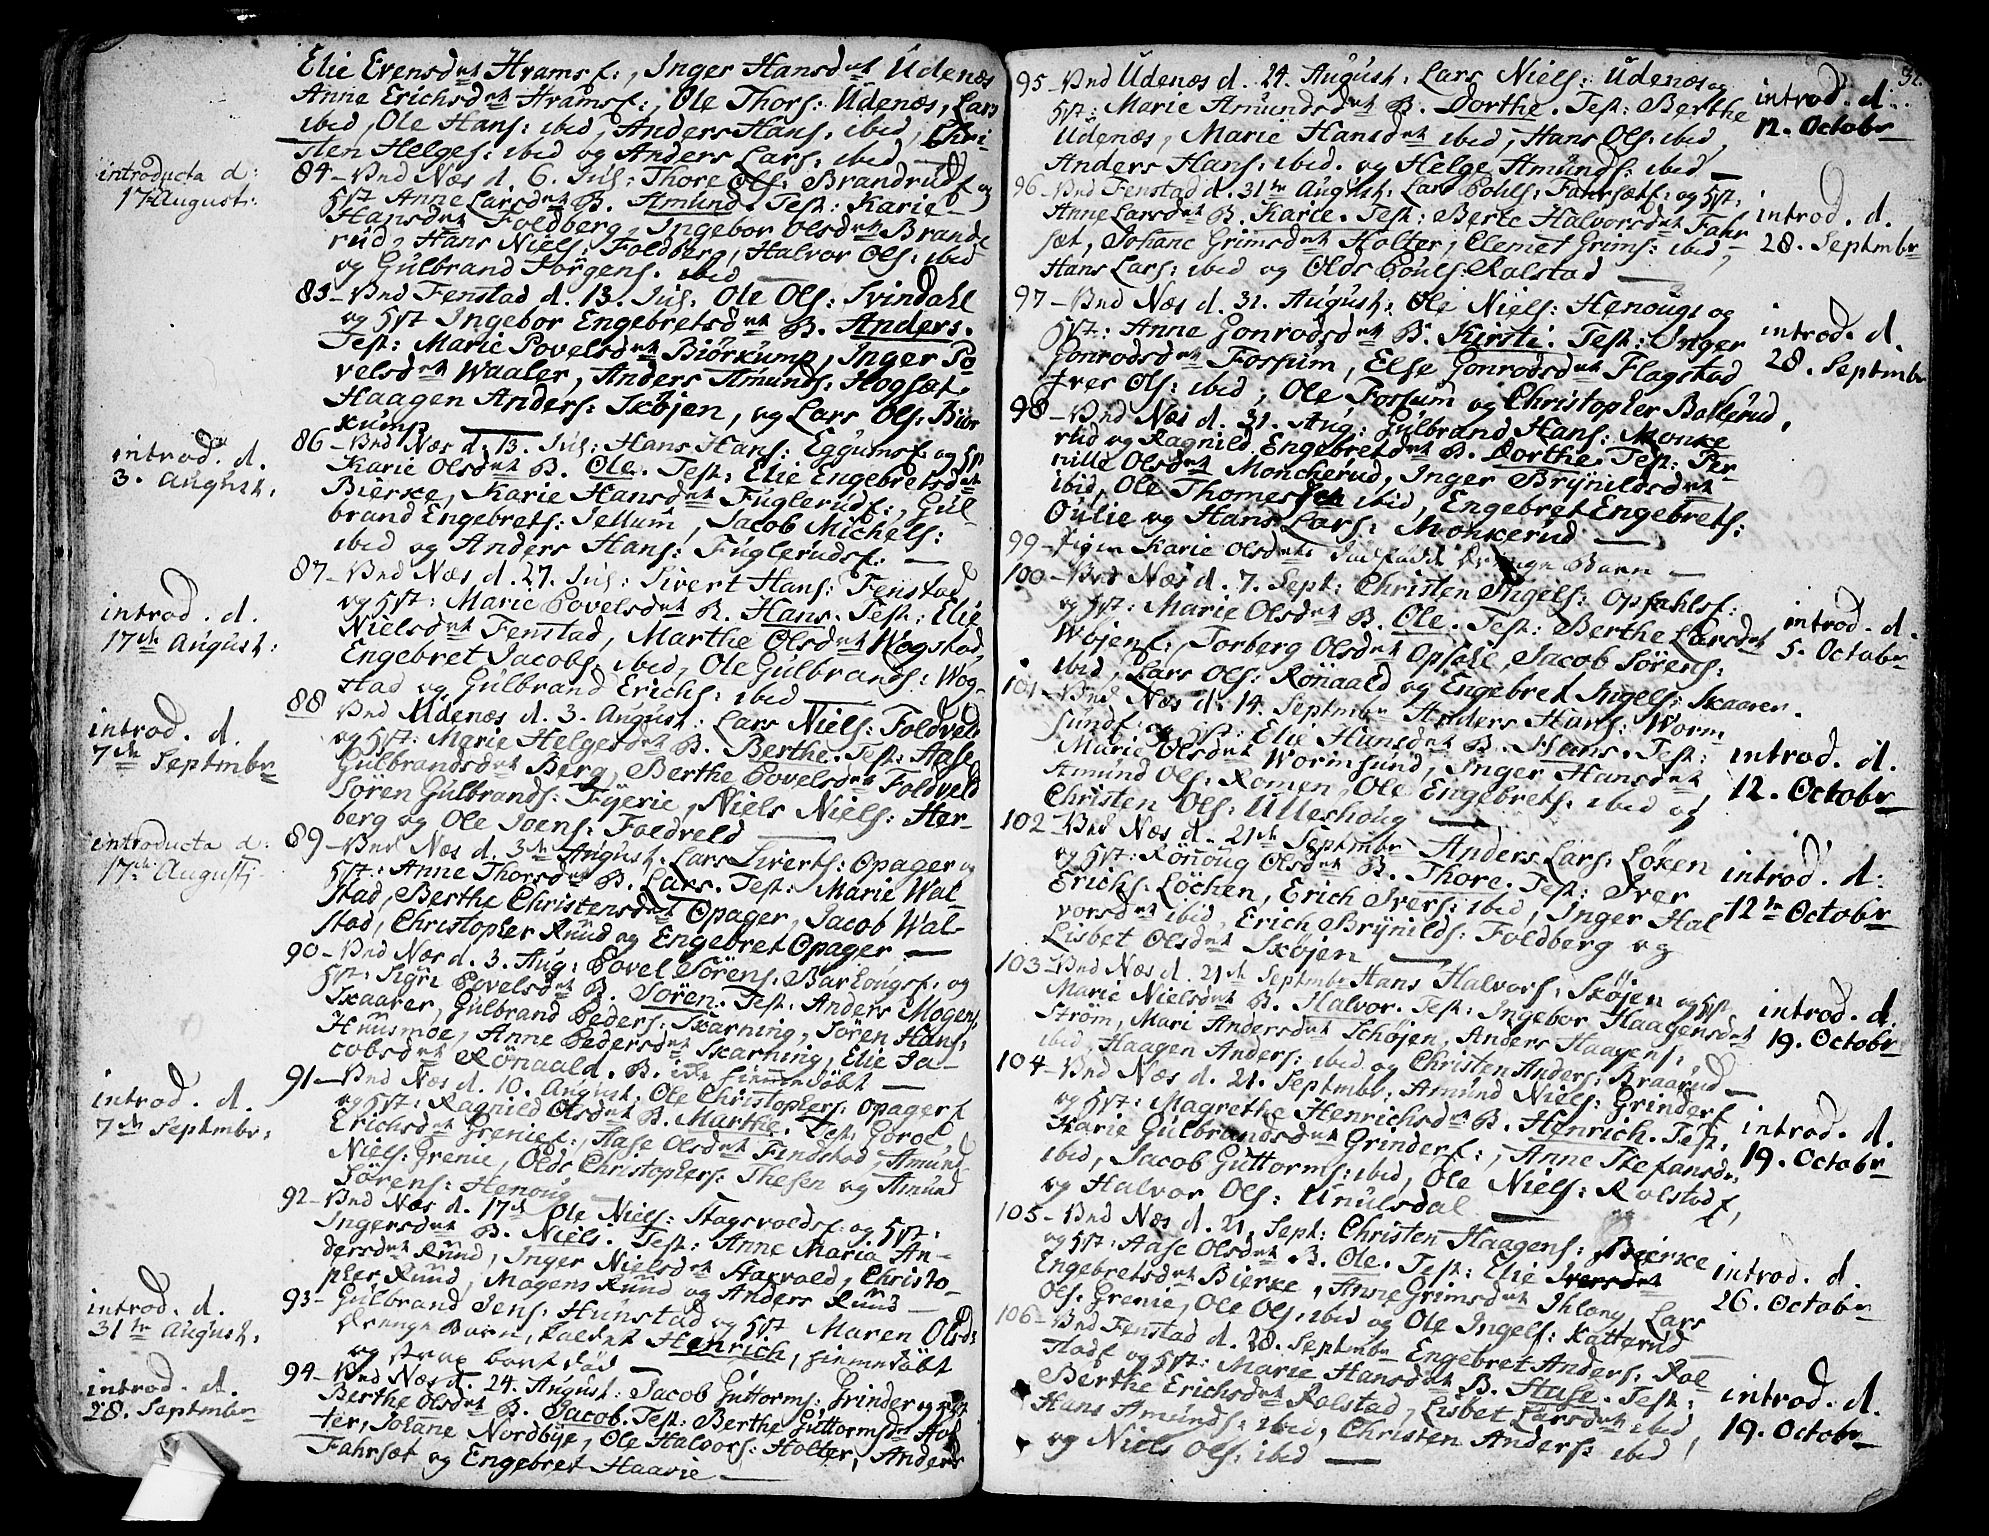 Elie Evensdtr Hramsf:, Inger Hansdtr Udenæs
Anne Erichsdtr Hramsf:, Ole Thors: Udenæs, Lars
ibid, Ole Hans: ibid, Anders Hans: ibid, Chri-
sten Helges: ibid og Anders Lars: ibid —
introducta d:
17 August:
84 - Vnd Næs d. 6. Jul: Thore Ols: Brandrudf og
hst Anne Larsdtr B. Amund. Test: Karie
Hansdtr Foldberg, Ingebor Olsdtr Brande
rud, Hans Niels: Foldberg, Halvor Ols: ibid
og Gulbrand Jørgens. ibid —
85 - Vnd Fenstad d. 13. Jul: Ole Ols: Svindahl
og hst Ingebor Engebretsdtr B. Anders.
Test: Marie Povelsdtr Biørkump, Inger Po
velsdtr Waaler, Anders Amunds: Hogset,
Haagen Anders: Skøjen, og Lars Ols: Biør
kump —
introd. d.
3. August:
86 - Vnd Næs d. 13. Jul: Hans Hans: Eggumsf og hst
Karie Olsdtr B. Ole. Test: Elie Engebretsdtr
Bierke, Karie Hansdtr Fuglerudf:, Gul-
brand Engebrets: Sellum, Jacob Michels:
ibid og Anders Hans: Fuglerudsf. —
introd. d.
17de August:
87 - Vnd Næs d. 27. Jul: Sivert Hans: Fenstad
og hst: Marie Povelsdtr B. Hans. Test: Elie
Nielsdtr Fenstad, Marthe Olsdtr Wogstad,
Engebret Jacobs. ibid, Ole Gulbrands: Wog-
stad og Gulbrand Erichs: ibid —
introd. d.
7de Septmbr
88 Vnd Udenæs d. 3. August: Lars Niels: Foldveld
og hst: Marie Helgesdtr B. Berthe. Test: Aase
Gulbrandsdtr Berg, Berthe Povelsdtr Foldveld
Søren Gulbrands: Fyerie, Niels Niels: Her-
berg og Ole Joens: Foldveld —
introducta d:
17de Augusti
89 - Vnd Næs d. 3de August. Lars Siverts: Opager og
hst: Anne Thorsdtr B. Lars. Test: Marie Wal-
stad, Berthe Christensdtr Opager, Jacob Wal-
stad, Christopher Ruud og Engebret Opager —
90 - Vnd Næs d. 3. Aug: Povel Sørens. Barhougsf: og
hst: Sigri Povelsdtr B. Søren. Test: Anders Mogens,
Skaarer, Gulbrand Peders: Skarning, Søren Hans:
Huusmoe, Anne Pedersdtr Skarning, Elie Ja-
cobsdtr Rønaald. B. hiemmedøbt —
introd. d.
7de Septmbr:
91 - Vnd Næs d. 10. August: Ole Christophers: Opagerf
og hst: Ragnild Olsdtr B. Marthe. Test: Goroe
Erichsdtr Grenief:, Aase Olsdtr Findstad, Amund
Niels: Grenie, Olds Christophers: Thesen og Amund
Sørens: Henoug
92 - Vnd Næs d. 17de Ole Niels: Stagsvoldsf: og hst:
Ingersdtr B. Niels. Test: Anne Maria An-
dersdtr Ruud, Inger Nielsdtr Starvold, Christo-
pher Ruud, Magens Ruud og Anders Ruud —
introd. d.
31te August:
93 - Gulbrand Jens: Hunstad og hst Maren Olsd:
Drenge Barn, kaldet Henrich, hiemmedøbt
og strax bort død —
introd. d.
28. Septmbr
94 - Vnd Næs d. 24. August: Jacob Guttorms: Grinder og hst
Berthe Olsdtr B. Jacob. Test: Berthe Guttormsdtr Hol
ter, Johane Nordbye, Ole Halvors: Holter, Anders
Fahrsæt og Engebret Haavie —
95 - Vnd Udenæs d. 24. August: Lars Niels: Udenæs og
hst: Marie Amundsdtr B. Dorthe. Test: Berthe
Udenæs, Marie Hansdtr ibid, Hans Ols: ibid,
Anders Hans: ibid. og Helge Amunds: ibid —
introd. d.
12. Octobr
96 - Vnd Fenstad d. 31te August: Lars Pouls: Fahrsætf: og hst:
Anne Larsdtr B. Karie. Test: Berte Halvorsdtr Fahr
sæt, Johane Grimsdtr Holter, Clemet Grims: ibid,
Hans Lars: ibid og Olds Pouls: Ralstad —
introd. d.
28. Septmbr
97 - Vnd Næs d. 31. August: Ole Niels: Henougs og
hst: Anne Gonrodsdtr B. Kirsti. Test: Inger
Gonrodsdtr Fossum, Else Gonrodsdtr Flagstad
Iver Ols: ibid, Ole Fossum og Christopher Ballerud,
introd. d.
28. Septmbr
98 - Vnd Næs d. 31. Aug: Gulbrand Hans: Monke
rud og Ragnild Engebretsdtr B. Dorthe. Test: Per-
nille Olsdtr Moncherud, Inger Brynildsdtr
ibid, Ole Thomes ibid, Engebret Engebrets:
Oulie og Hans Lars: Monkerud —
99 - Pigen Karie Olsdtrs Barn —
100 - Vnd Næs d. 7. Sept: Christen Ingels: Opsahlsf:
og hst: Marie Olsdtr B. Ole. Test: Berthe Larsdtr
Wøjenf:, Torberg Olsdtr Opsahl, Jacob Sørens:
ibid, Lars Ols: Rønaald og Engebret Ingels: Skaarer.
introd. d.
5. Octobr
101 - Vnd Næs d. 14. Septmbr Anders Hans: Worm
sundf: og hst: Elie Hansdtr B. Hans. Test:
Marie Olsdtr Wormsund, Inger Hansdtr,
Amund Ols: Romen, Ole Engebrets: ibid og
Christen Ols: Ulleshoug —
introd. d.
12. Octobr
102 - Vnd Næs d. 21de Septmbr Anders Lars: Løken
og hst: Rønoug Olsdtr B. Thore. Test: Iver
Erichs: Løchen, Erich Ivers: ibid, Inger Hal
vorsdtr ibid, Erich Brynilds: Foldberg og
Lisbet Olsdtr Skøjen —
introd. d:
12te Octobr
103 - Vnd Næs d. 21de Septmbr Hans Halvors: Skøjen og hst
Marie Nielsdtr B. Halvor. Test: Ingebor Haagensdtr
Strøm, Mari Andersdtr Schøjen, Anders Haagens:,
ibid, Haagen Anders: ibid og Christen Anders: Braarud —
introd. d.
19. Octobr
104 - Vnd Næs d. 21. Septmbr: Amund Niels: Grinderf
og hst: Magrethe Henrichsdtr B. Henrich. Test:
Karie Gulbrandsdtr Grinderf:, Anne Stefansdr:
ibid, Jacob Guttorms: ibid, Ole Niels: Ralstadf,
og Halvor Ols: Unulsdal —
introd. d.
19. Octobr
105 - Vnd Næs d. 21. Sept: Christen Haagens: Bierke
og hst: Aase Olsdtr B. Ole. Test: Elie Iversdtr
Engebretsdtr Bierke, Anne Grimsdtr Ihlong, Lars
Ols: Grenie, Ole Ols: ibid og Ole Ingels: Katterud —
introd. d.
26. Octobr
106 - Vnd Fenstad d. 28. Septmbr Engebret Anders: Ral
stadf og hst: Marie Hansdtr B. Aase. Test:
Berthe Erichsdtr Ralstad, Lisbet Larsdtr ibid
Hans Amunds: ibid, Christen Anders: ibid,
og Niels Ols: ibid —
introd. d.
19. Octobr